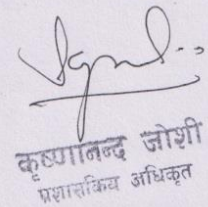 कृष्णानन्द जोशी
प्रशासकिय अधिकृत